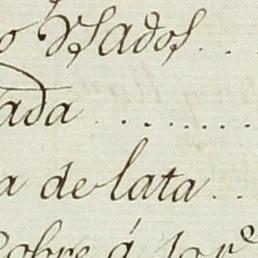 o Vsados . .
ada . . . . . . . .
a de lata . .
Cobre á